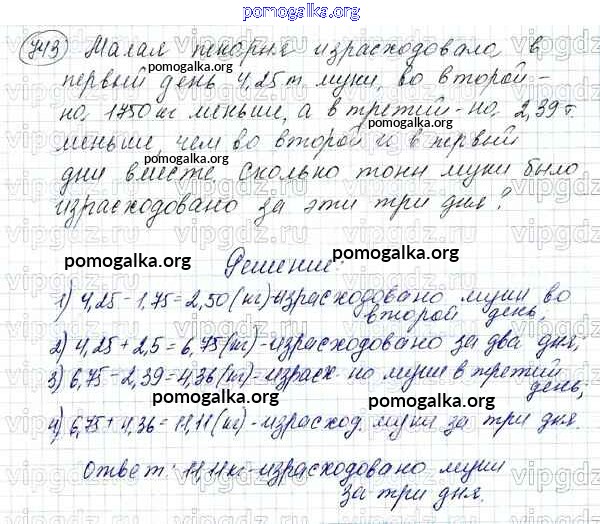 pomogalka.org
743 Малая пекарня израсходовала в
первый день 4,25 т муки, во второй –
на 1750 кг меньше, а в третий – на 2,39 т.
меньше, чем во второй и в первый
дни вместе. Сколько тонн муки было
израсходовано за эти три дня?
Решение:
1) 4,25 – 1,75 = 2,50 (кг) – израсходовано муки во
второй день;
2) 4,25 + 2,5 = 6,75 (кг) – израсходовано за два дня;
3) 6,75 – 2,39 = 4,36 (кг) – израсх-но муки в третий
день;
4) 6,75 + 4,36 = 11,11 (кг) – израсход. муки за три дня.
Ответ: 11,11 кг – израсходовано муки
за три дня.